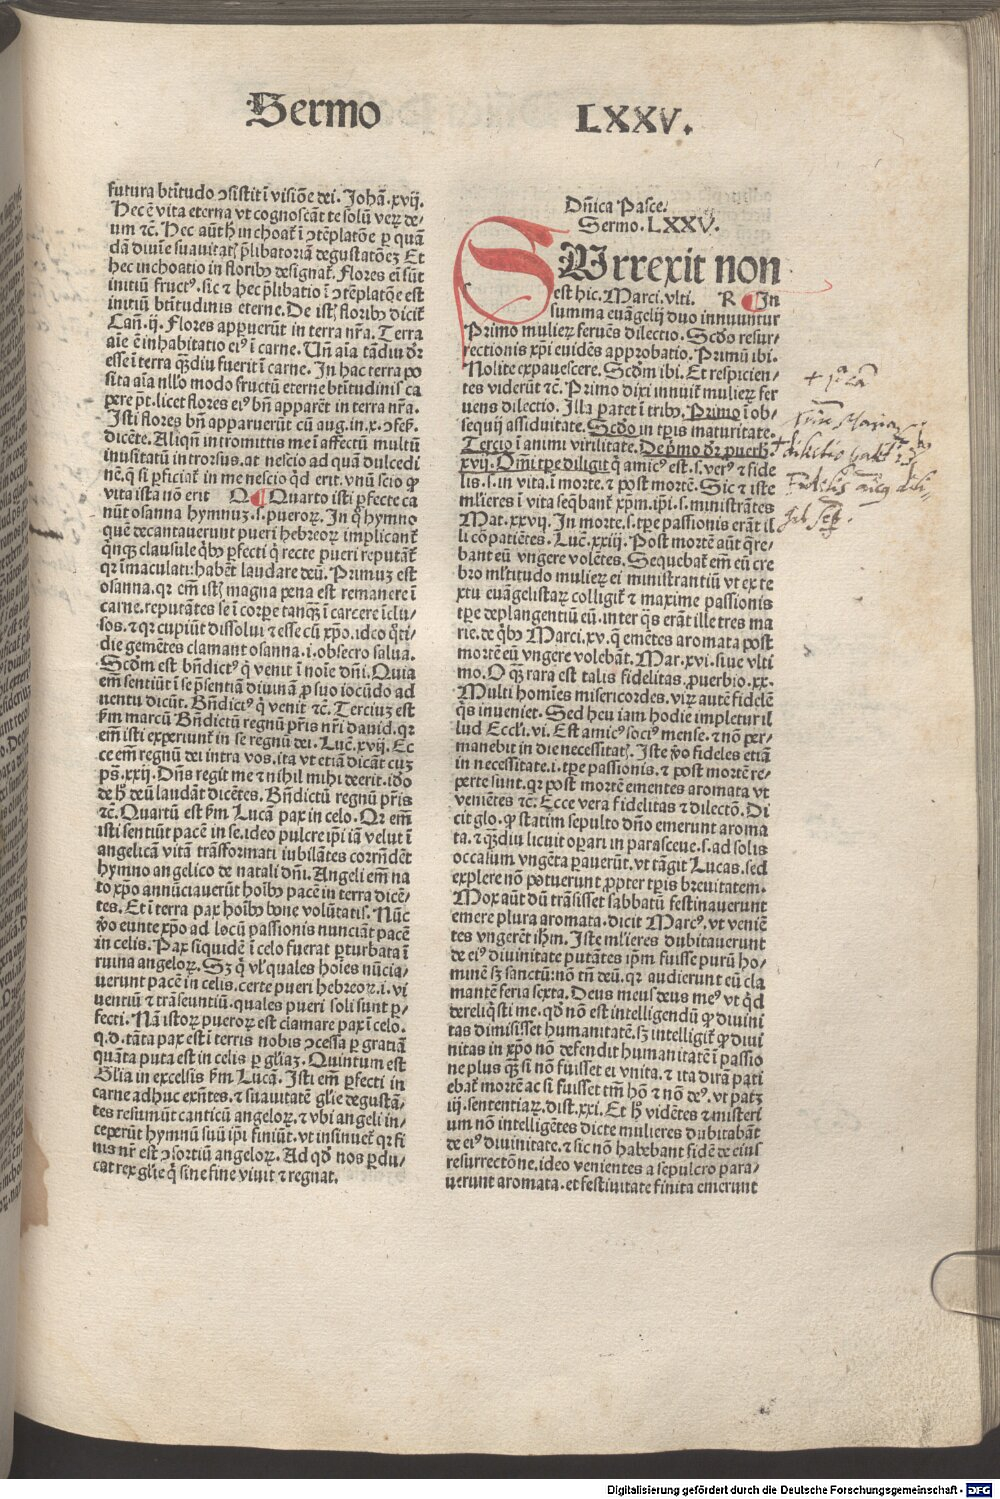 Sermo LXXV.
futura btītudo ɔsistit ī visiōe dei. Johā.xvij.
Hec ē vita eterna vt cognoscāt te solū verꝝ de-
um ⁊c. Hec aūt hͥ inchoat᷑ ī ɔtēplatōe ꝑ quā
dā diuīe suauitatꝭ p̄libatoriā degustatōeꝫ Et
hec inchoatio in floribꝰ designat᷑. Flores em̄ sūt
initiū fructꝰ. sic ⁊ hec p̄libatio ī ɔtēplatōe est
initiū btītudinis eterne. De istꝭ floribꝰ dicit᷑
Cañ.ij. Flores apꝑuerūt in terra nr̄a. Terra
aīe ē inhabitatio eiꝰ ī carne. Uñ aīa tādiu dr̄
esse ī terra qꝫdiu fuerit ī carne. In hac terra po
sita aīa nllo modo fructū eterne btītudinis ca
pere pt̄. licet flores eiꝰ bñ apparēt in terra nr̄a.
Isti flores bñ apparuerūt cū aug.in.x.ɔfes.
dicēte. Aliqñ intromittis me ī affectū multū
inusitatū introrsus. at nescio ad quā dulcedi
nē. q̄ si ꝑficiat᷑ in me nescio qd erit. vnū scio ꝙ
vita ista nō erit Q Quarto isti ꝑfecte ca
nūt osanna hymnuꝫ.s.pueroꝝ. In q̄ hymno
quē decantauerūt pueri hebreoꝝ implicant᷑
qnqꝫ clausule qbꝰ ꝑfecti q̄ recte pueri reputāt᷑
qꝛ īmaculati: habēt laudare deū. Primuꝫ est
osanna. qꝛ em̄ istꝭ magna pena est remanere ī
carne. reputātes se ī corꝑe tanqꝫ ī carcere īclu-
sos. ⁊ qꝛ cupiūt dissolui ⁊ esse cū xp̄o. ideo q̄ti-
die gemētes clamant osanna .i. obsecro salua.
Scd̄m est bn̄dictꝰ q̄ venit ī noīe dn̄i. Quia
em̄ sentiūt ī se p̄sentiā diuinā ꝓ suo iocūdo ad
uentu dicūt. Bn̄dictꝰ q̄ venit ⁊c. Terciuꝫ est
ẜm marcū Bn̄dictū regnū pr̄is nr̄i dauid. qꝛ
em̄ isti experiunt᷑ in se regnū dei. Luc̄.xvij. Ec
ce em̄ regnū dei intra vos. ita vt etiā dicāt cuꝫ
pṣ.xxij. Dn̄s regit me ⁊ nihil mihi deerit. ido
de hͦ deū laudāt dicētes. Bn̄dictū regnū pr̄is
⁊c. Quartū est ẜm Lucā pax in celo. Qꝛ em̄
isti sentiūt pacē in se. ideo pulcre ip̄i iā velut ī
angelicā vitā trāsformati iubilātes corrn̄dēt
hymno angelico de natali dn̄i. Angeli em̄ na
to xp̄o annūciauerūt hoībꝰ pacē in terra dicē-
tes. Et ī terra pax hoībꝰ bone volūtatis. Nūc
ꝟo eunte xp̄o ad locū passionis nunciāt pacē
in celis. Pax siquidē ī celo fuerat ꝑturbata ī
ruina angeloꝝ. Sꝫ q̄ vl quales hoīes nūcia-
uerunt pacē in celis. certe pueri hebreoꝝ.i.vi
uentiū ⁊ trāseuntiū. quales pueri soli sunt ꝑ-
fecti. Nā istoꝝ pueroꝝ est clamare pax ī celo.
q.d. tāta pax est ī terris nobis ɔcessa ꝑ gratiā
quāta puta est in celis ꝑ gliaꝫ. Quintum est
Glia in excelsis ẜm Lucā. Isti em̄ ꝑfecti in
carne adhuc exn̄tes. ⁊ suauitatē glie degustā-
tes resumūt canticū angeloꝝ. ⁊ vbi angeli in-
ceperūt hymnū suū ip̄i finiūt. vt insinuet᷑ qꝛ fi
nis nr̄ est ɔsortiū angeloꝝ. Ad qd̄ nos ꝑdu-
cat rex glie q̄ sine fine viuit ⁊ regnat.
Dn̄ica Pasce.
Sermo.LXXV.
SUrrexit non
est hic. Marci.vlti. R In
summa euāgelij duo innuuntur
Primo mulieꝝ feruēs dilectio. Scd̄o resur-
rectionis xp̄i euidēs approbatio. Primū ibi.
Nolite expauescere. Scd̄m ibi. Et respicien-
tes viderūt ⁊c. Primo dixi innuit᷑ mulieꝝ fer
uens dilectio. Illa patet ī tribꝰ. Primo ī ob-
sequij assiduitate. Scd̄o in tꝑis maturitate.
Tercio ī animi virilitate. De pͥmo dr̄ prouerb̄.
xvij. Om̄i tꝑe diligit q̄ amicꝰ est. s. verꝰ ⁊ fide
lis. s. in vita. ī morte. ⁊ post mortē. Sic ⁊ iste
ml̄ieres ī vita seq̄bant᷑ xp̄m. ip̄i. s. ministrātes
Mat.xxvij. In morte. s. tꝑe passionis erāt il
li cōpatiētes. Luc̄.xxiij. Post mortē aūt q̄re-
bant eū vngere volētes. Sequebat᷑ em̄ eū cre
bro ml̄titudo mulieꝝ ei ministrantiū vt ex te
xtu euāgelistaꝝ colligit᷑ ⁊ maxime passionis
tꝑe deplangentiū eū. inter q̄s erāt ille tres ma
rie. de qbꝰ Marci.xv. q̄ emētes aromata post
mortē eū vngere volebāt. Mar.xvi. siue vlti
mo. O qꝫ rara est talis fidelitas. ꝓuerbio.xx.
Multi homīes misericordes. viꝝ autē fidelē
q̄s inueniet. Sed heu iam hodie impletur il
lud Eccli.vi. Est amicꝰ sociꝰ mense. ⁊ nō ꝑ-
manebit in die necessitatꝭ. Iste ꝟo fideles etiā
in necessitate.i. tꝑe passionis. ⁊ post mortē re-
perte sunt. qꝛ post mortē ementes aromata vt
veniētes ⁊c. Ecce vera fidelitas ⁊ dilectō. Di
cit glo. ꝙ statim sepulto dn̄o emerunt aroma
ta. ⁊ qꝫdiu licuit oꝑari in parasceue. s. ad solis
occasum vngēta ꝑauerūt. vt tāgit Lucas. sed
explere nō potuerunt ꝓpter tꝑis breuitatem.
Mox aūt dū trāsisset sabbatū festinauerunt
emere plura aromata. dicit Marcꝰ. vt veniē
tes vngerēt ih̄m. Iste ml̄ieres dubitauerunt
de eiꝰ diuinitate putātes ip̄m fuisse purū ho-
minē sꝫ sanctū: nō tn̄ deū. qꝛ audierunt eū cla
mantē feria sexta. Deus meus deus meꝰ vt qd̄
dereliq̄sti me. qd̄ nō est intelligendū ꝙ diuini
tas dimisisset humanitatē. sꝫ intelligit᷑ ꝙ diui
nitas in xp̄o nō defendit humanitatē ī passio
ne plus qꝫ si nō fuisset ei vnita. ⁊ ita dira pati
ebat᷑ mortē ac si fuisset tm̄ hō ⁊ nō deꝰ. vt patꝫ
iij. sententiaꝝ. dist.xxi. Et hͦ vidētes ⁊ misteri
um nō intelligētes dicte mulieres dubitabāt
de eiꝰ diuinitate. ⁊ sic nō habebant fidē de eius
resurrectōne. ideo venientes a sepulcro para-
uerunt aromata. et festiuitate finita emerunt
Digitalisierung gefördert durch die Deutsche Forschungsgemeinschaft - DFG